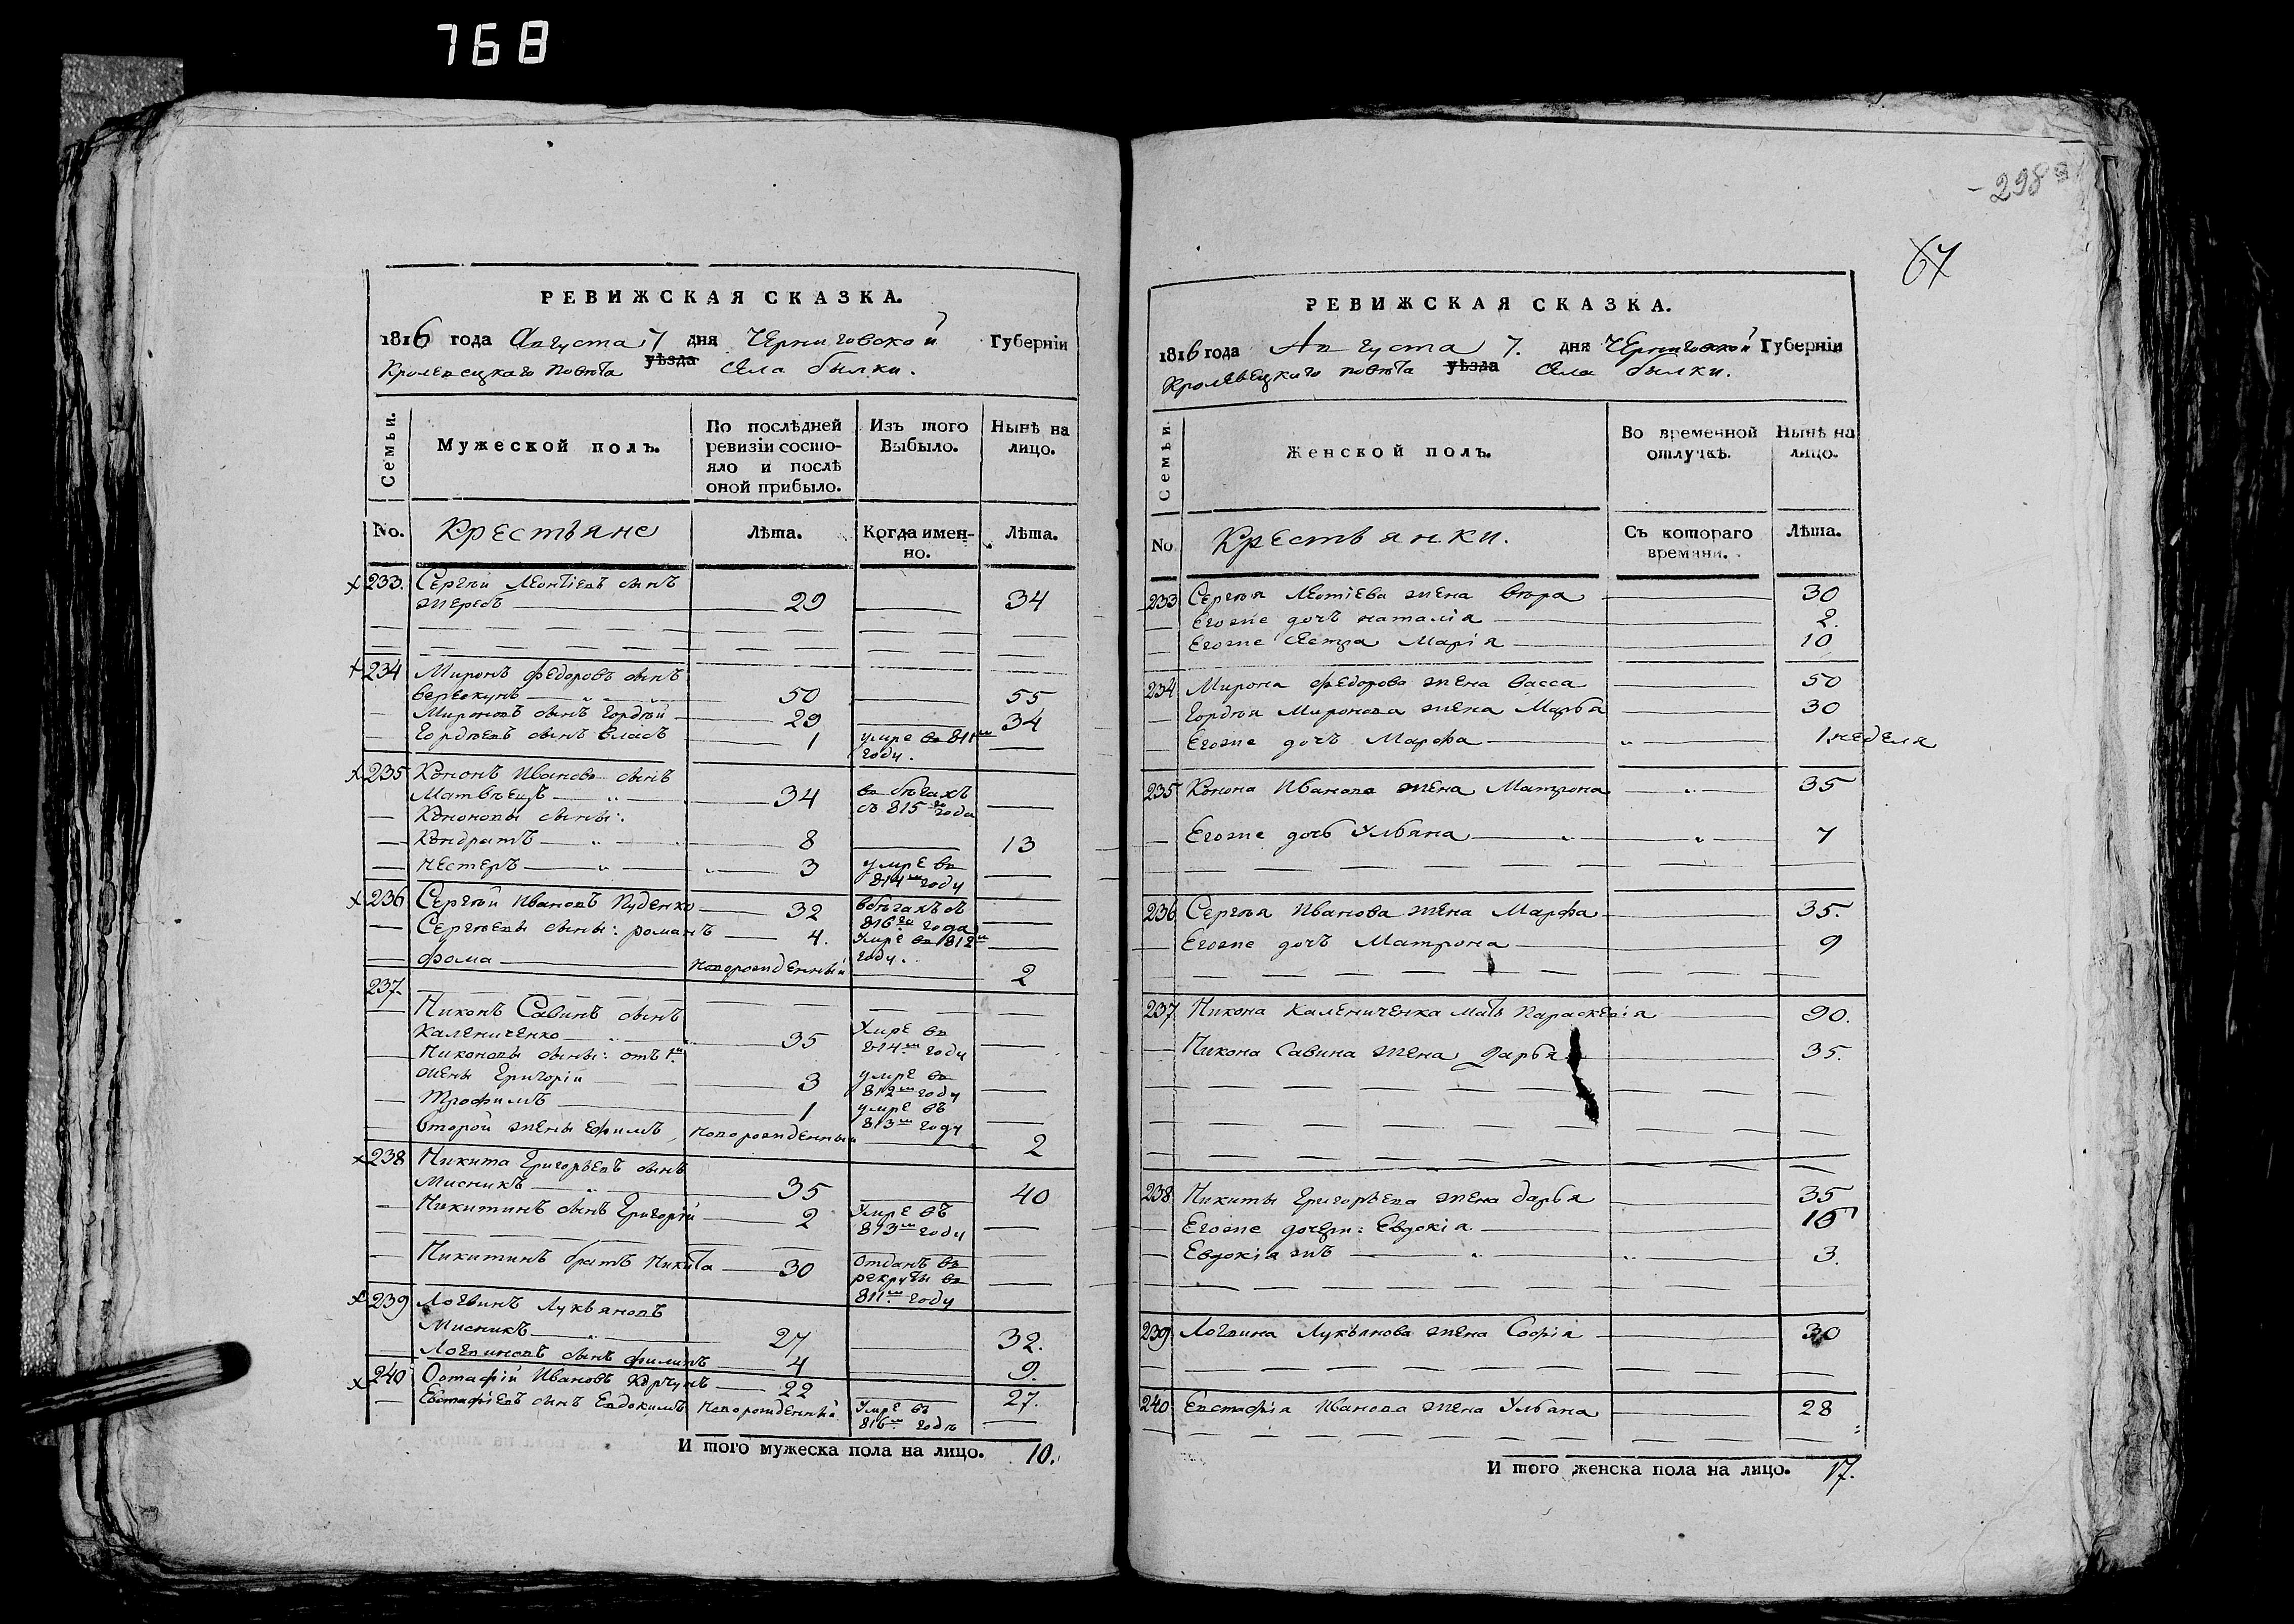 768
РЕВИЖСКАЯ СКАЗКА.
1816 года Августа 7 дня Черниговской Губерніи
Кролевецкаго повѣта уѣзда Села былки.
Семьи.
Мужеской полъ.
По послѣдней ревизіи состояло и послѣ оной прибыло.
Изъ того Выбыло.
Нынѣ на лицо.
No. Крестьяне Лѣта. Когда именно. Лѣта.
233. Сергѣй Леонтіевъ сынъ
жеребъ 29 34
234 Миронъ федоровъ сынъ
50 55
Мироновъ сынъ Гордѣй 29 34
Гордѣевъ сынъ власъ 1 умре въ 811м году.
235 Кононъ Ивановъ сынъ
Матвѣецъ 34 въ бѣгахъ съ 815го года
Кононовы сыны:
Кондратъ 8 13
Нестеръ 3 умре въ 814м году
236 Сергѣй Ивановъ Пуденко 32 вбѣгахъ съ 816го года
Сергѣевы сыны: романъ 4. Умре въ 812м году.
фома новорожденный 2
237.
Никонъ Савинъ сынъ
Калениченко 35 Умре въ 814м году
Никоновы сыны: отъ 1й
жены Григорій 3 умре въ 812м году
Трофимъ 1 умре въ 813м году
второй жены Ефимъ новорожденный 2
238 Никита Григорьевъ сынъ
Мисникъ 35 40
Никитинъ сынъ Григорій 2 Умре въ 813м году
Никитинъ братъ Никита 30 Отданъ въ рекруты въ 811м году
239 Логвинъ Лукьяновъ
Мисникъ 27 32.
Логвиновъ сынъ филипъ 4 9.
240 Остафій Ивановъ Корчунъ 22 27.
Евстафіевъ сынъ Евдокимъ Новорожденный Умре въ 816м годѣ
И того мужеска пола на лицо. 10.
298
67
РЕВИЖСКАЯ СКАЗКА.
1816 года Августа 7. дня Черниговской Губерніи
Кролевецкаго повѣта уѣзда Села былки.
Семьи.
Женской полъ.
Во временной отлучкѣ.
Нынѣ на лицо.
No Крестьянки. Съ котораго времяни. Лѣта.
233 Сергѣя Леотіева жена вѣра 30
Егоже дочь наталія 2.
Егоже Сестра Марія 10
234 Мирона федорова жена васса 50
Гордѣя Миронова жена Марья 30
Егоже дочъ Марфа 1. неделя
235 Конона Иванова жена Матрона 35
Егоже дочь Ульяна 7
236 Сергѣя Иванова жена Марфа 35.
Егоже дочъ Матрона 9
237 Никона Калениченка мать Параскевія 90.
Никона Савина жена Дарья 35.
238. Никиты Григорьева жена дарья 35
Егоже дочери: Евдокія 15
Евдокія жъ 3.
239 Логвина Лукьянова жена Софія 30
240 Евстафія Иванова жена Ульяна 28
И того женска пола на лицо. 17.